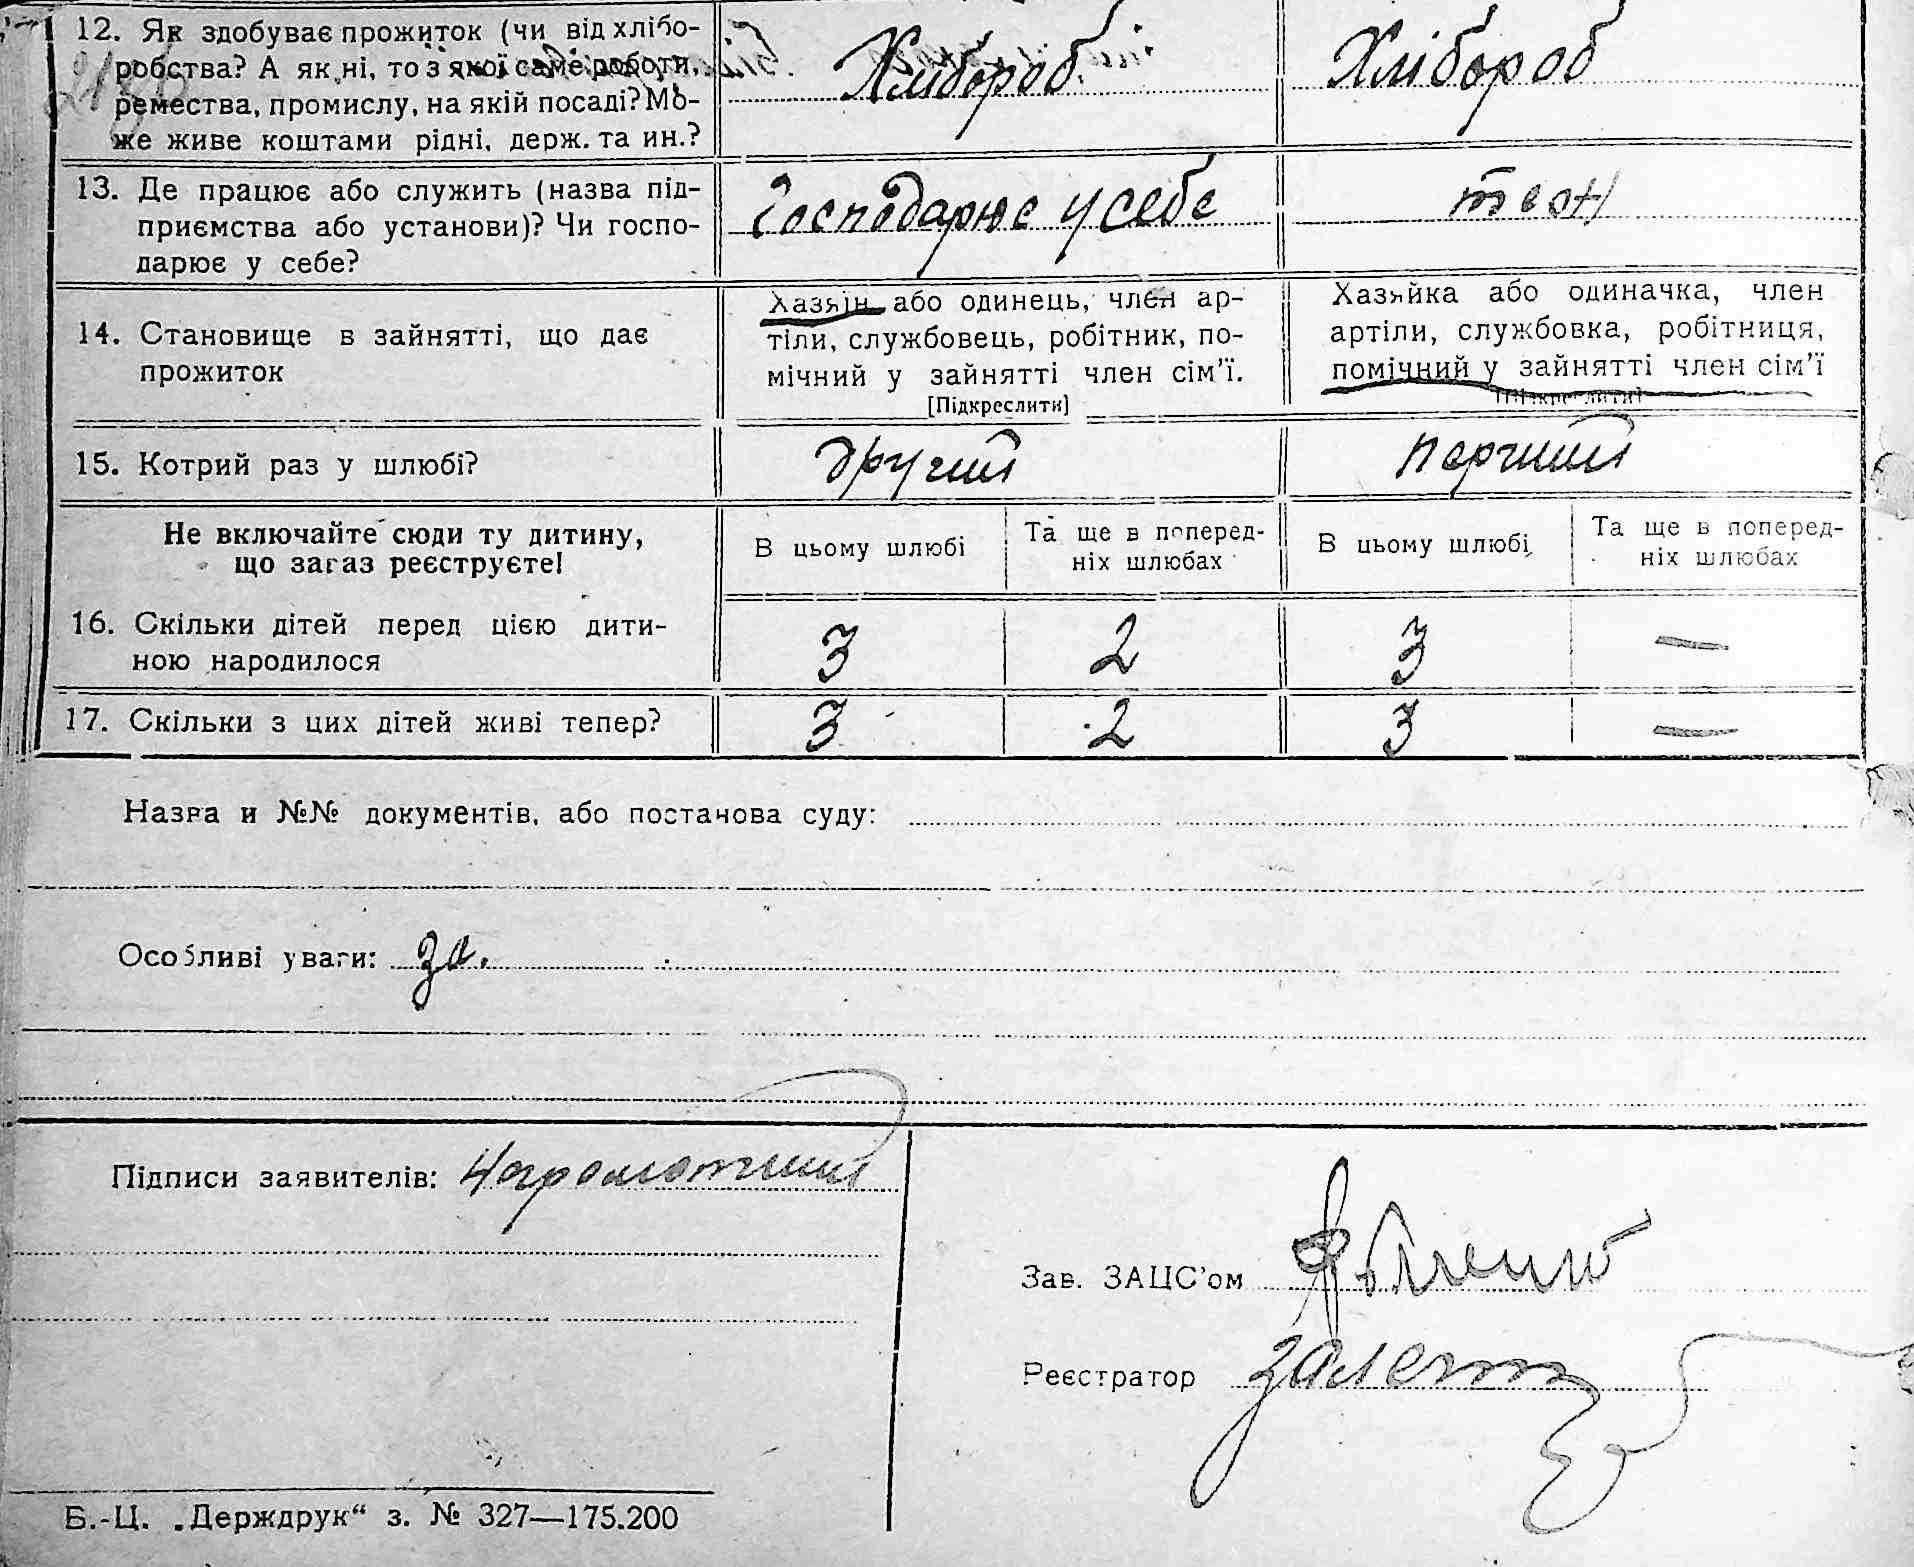 12. Як здобуває прожиток (чи від хлібо-
робства? А як ні, то з якої саме роботи,
ремества, промислу, на якій посаді? Мо-
же живе коштами рідні, держ. та ин.?
Хлібороб
Хлібороб
13. Де працює або служить (назва під-
приємства або установи)? Чи госпо-
дарює у себе?
Господарює у себе
14. Становище в зайнятті, що дає
прожиток
Хазяїн або одинець, член ар-
тіли, службовець, робітник, по-
мічний у зайнятті член сім'ї.
[Підкреслити]
Хазяйка або одиначка, член
артіли, службовка, робітниця,
помічний у зайнятті член сім'ї
[Підкреслити]
15. Котрий раз у шлюбі?
другий
перший
Не включайте сюди ту дитину,
що загаз реєструєте!
В цьому шлюбі
Та ще в поперед-
ніх шлюбах
В цьому шлюбі
Та ще в поперед-
ніх шлюбах
16. Скільки дітей перед цією дити-
ною народилося
3 2 3 —
17. Скільки з цих дітей живі тепер?
3 2 3 —
Назва и №№ документів, або постанова суду:
Особливі уваги: за.
Підписи заявителів: Неграмотний
Зав. ЗАЦС'ом
Реєстратор
Б.-Ц. „Держдрук“ з. № 327—175.200